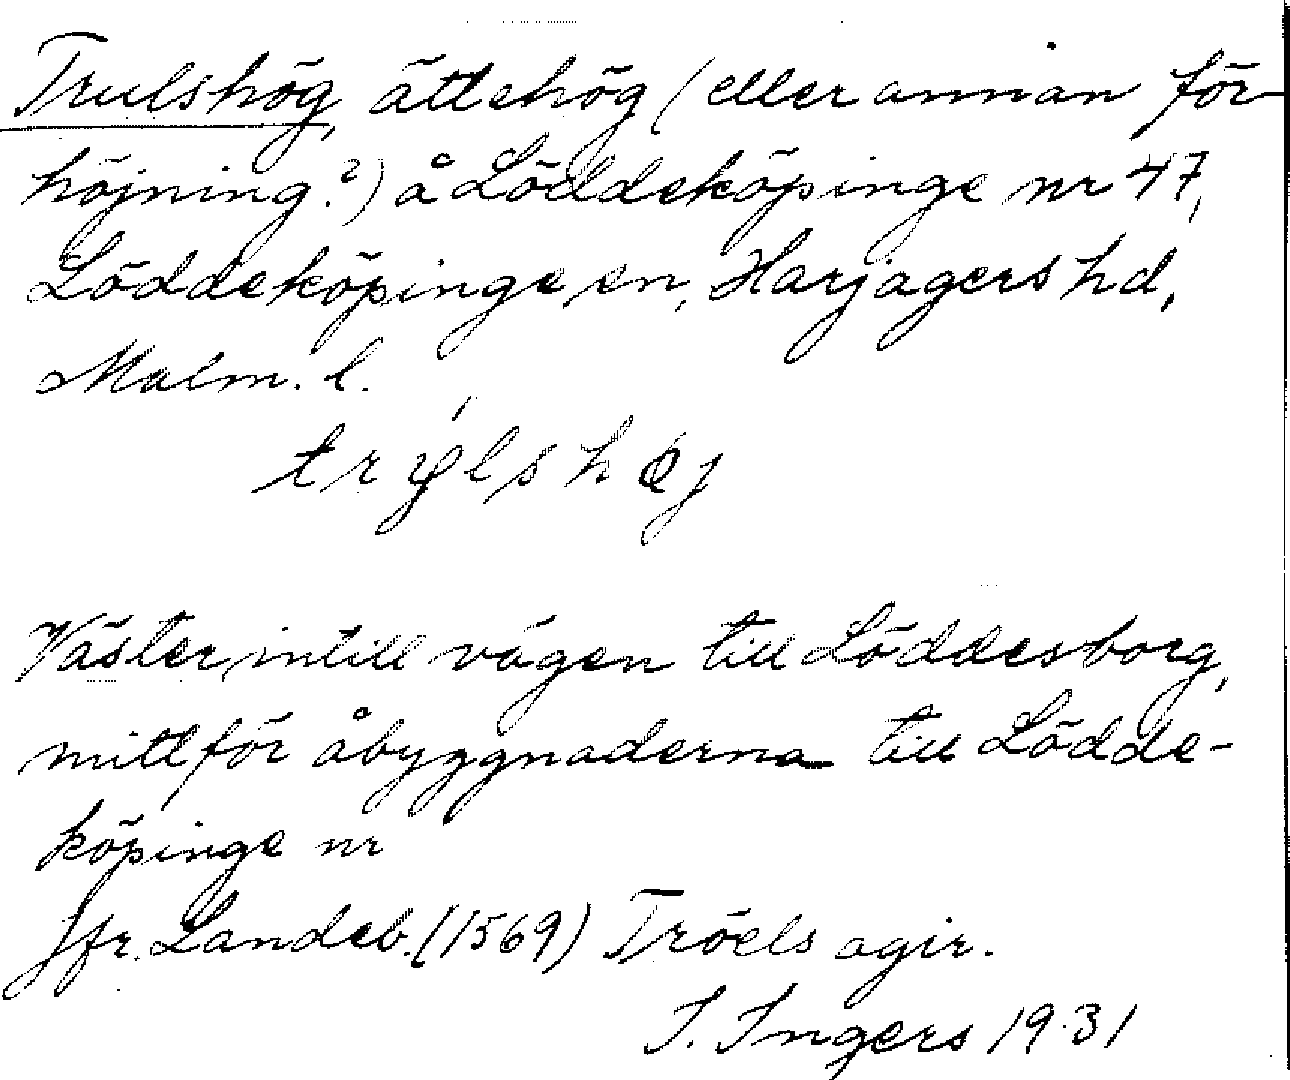 Trulshög, ättehög (eller annan för-
höjning?) å Löddeköpinge nr 47,
Löddeköpinge sn, Harjagers hd,
Malm. l.
trýlshøj
Väster intill vägen till Löddesborg,
mitt för åbyggnaderna till Lödde-
köpinge nr
Jfr. Landeb. (1569) Tröels agir.
I. Ingers 1931